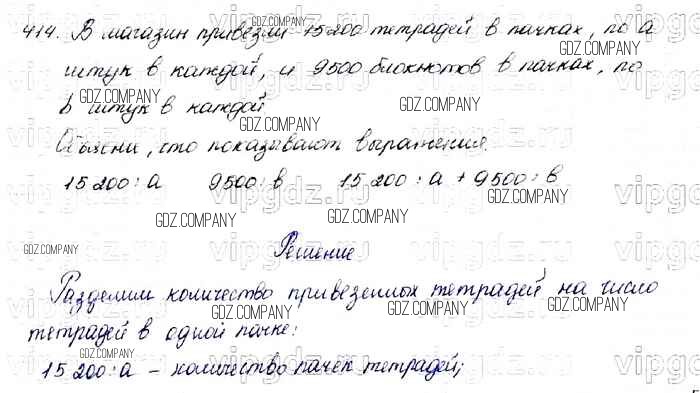 414. В магазин привезли 15200 тетрадей в пачках, по а
штук в каждой, и 9500 блокнотов в пачках, по
b штук в каждой
Объясни, что показывают выражения.
15 200 : а 9500 : в 15 200 : а + 9500 : в
Решение
Разделим количество привезенных тетрадей на число
тетрадей в одной пачке:
15 200 : а – количество пачек тетрадей;